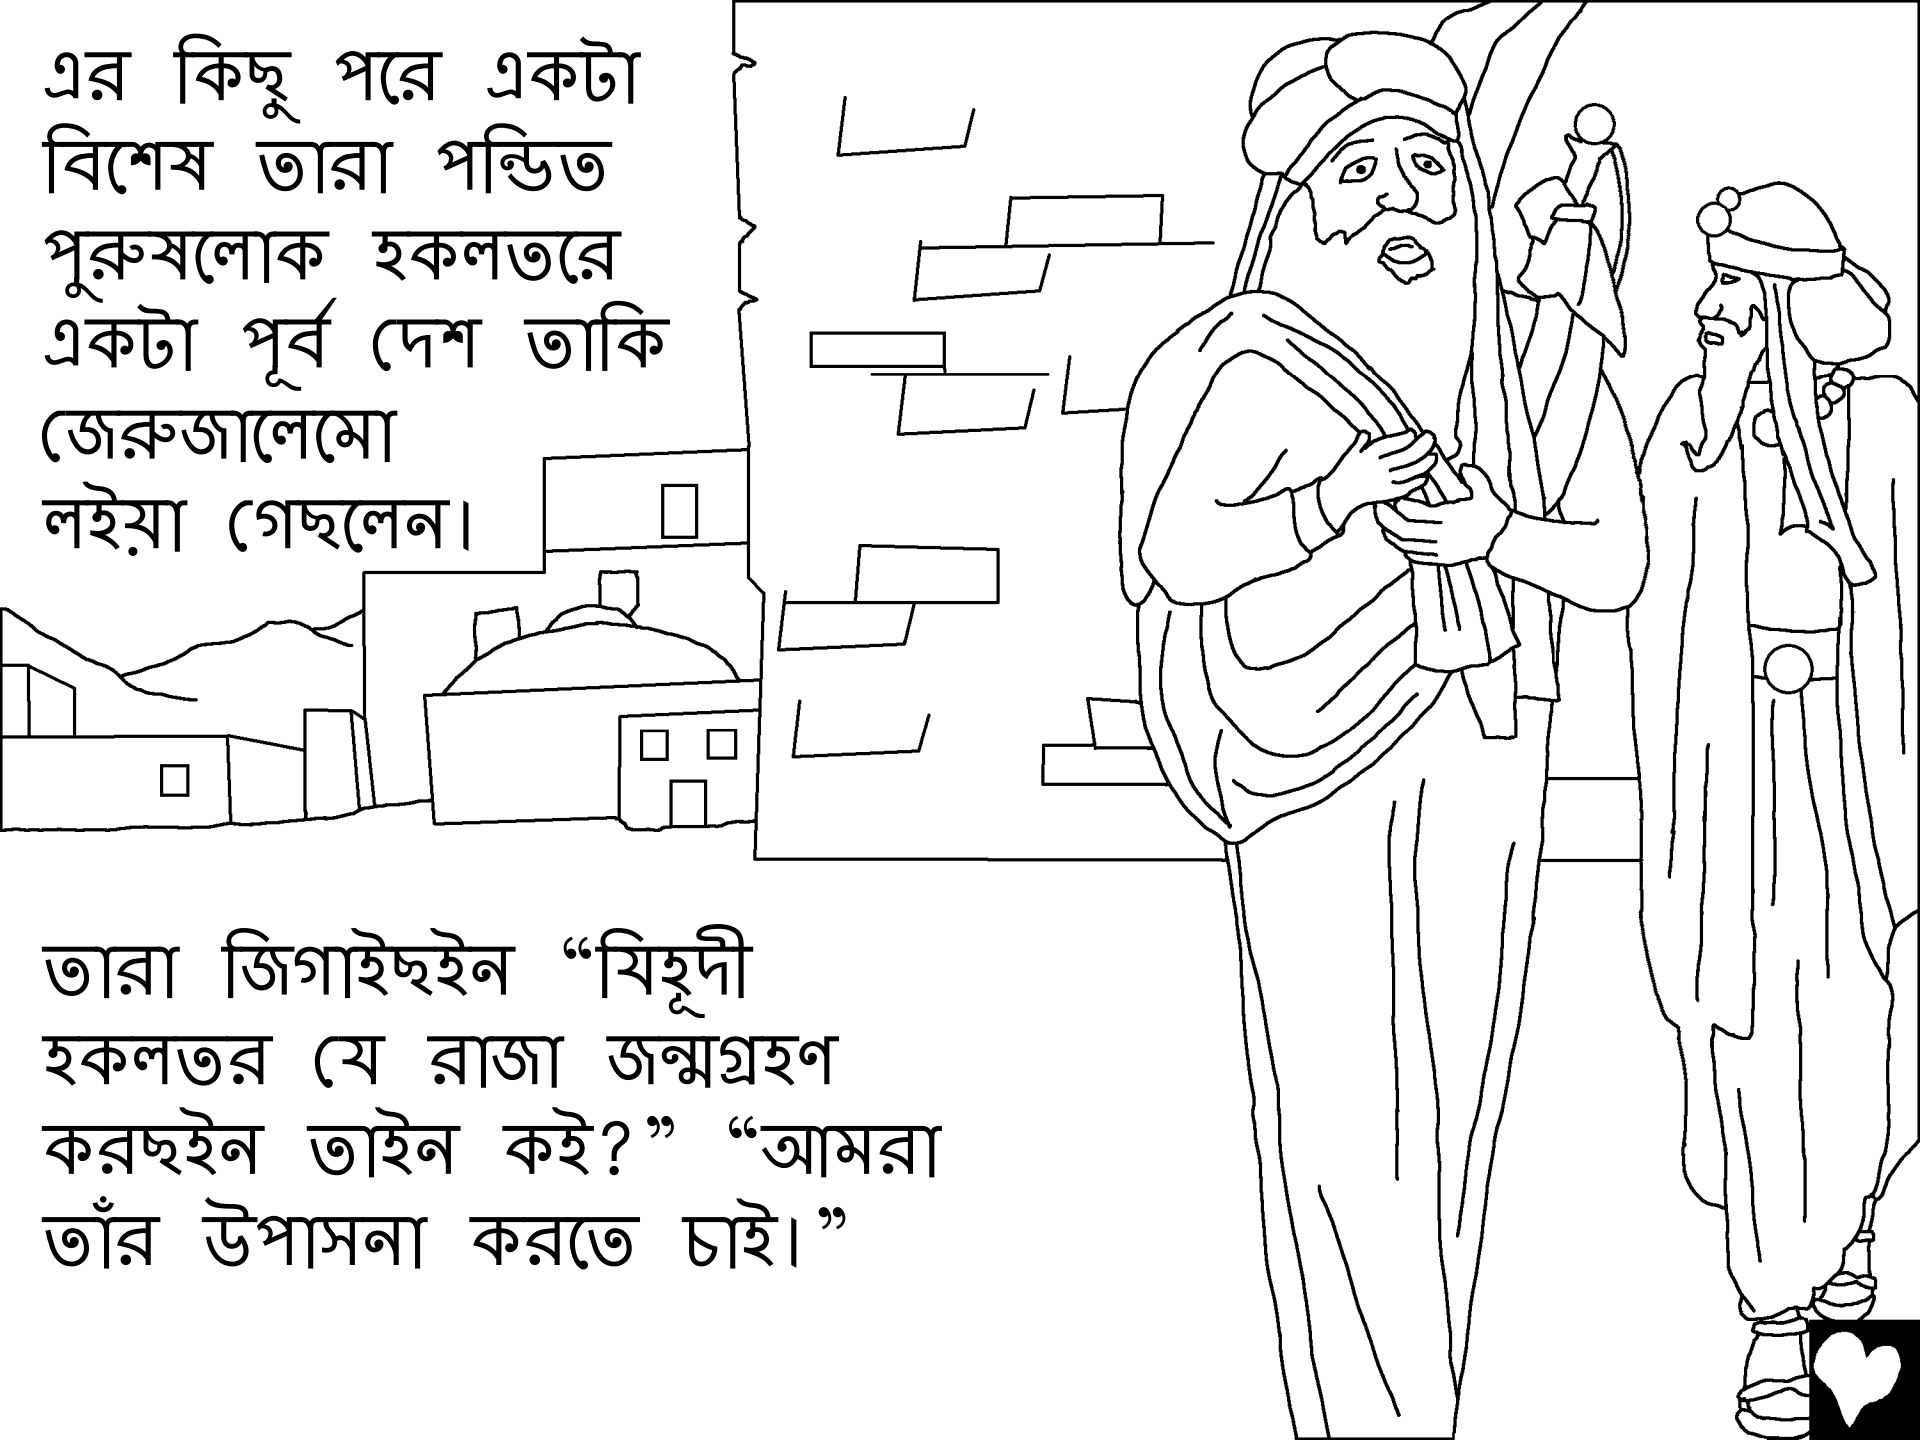 এর কিছু পরে একটা
বিশেষ তারা পন্ডিত
পুরুষলোক হকলতরে
একটা পূর্ব দেশ তাকি
জেরুজালেমো
লইয়া গেছলেন।
তারা জিগাইছইন “যিহূদী
হকলতর যে রাজা জন্মগ্রহণ
করছইন তাইন কই?” “আমরা
তাঁর উপাসনা করতে চাই।”